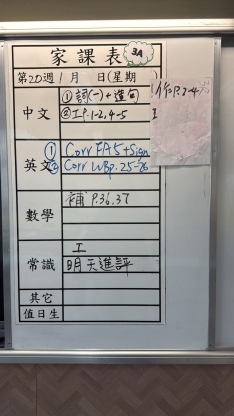 家課表 3A
第20週1月 日(星期 )
中文
①詞(一)+造句
②工P.1-2,4-5
作P.2-4
英文
① Corr FA5+Sign
② Corr WBp.25-26
數學
補P.36,37
常識
工
明天進評
其它
值日生